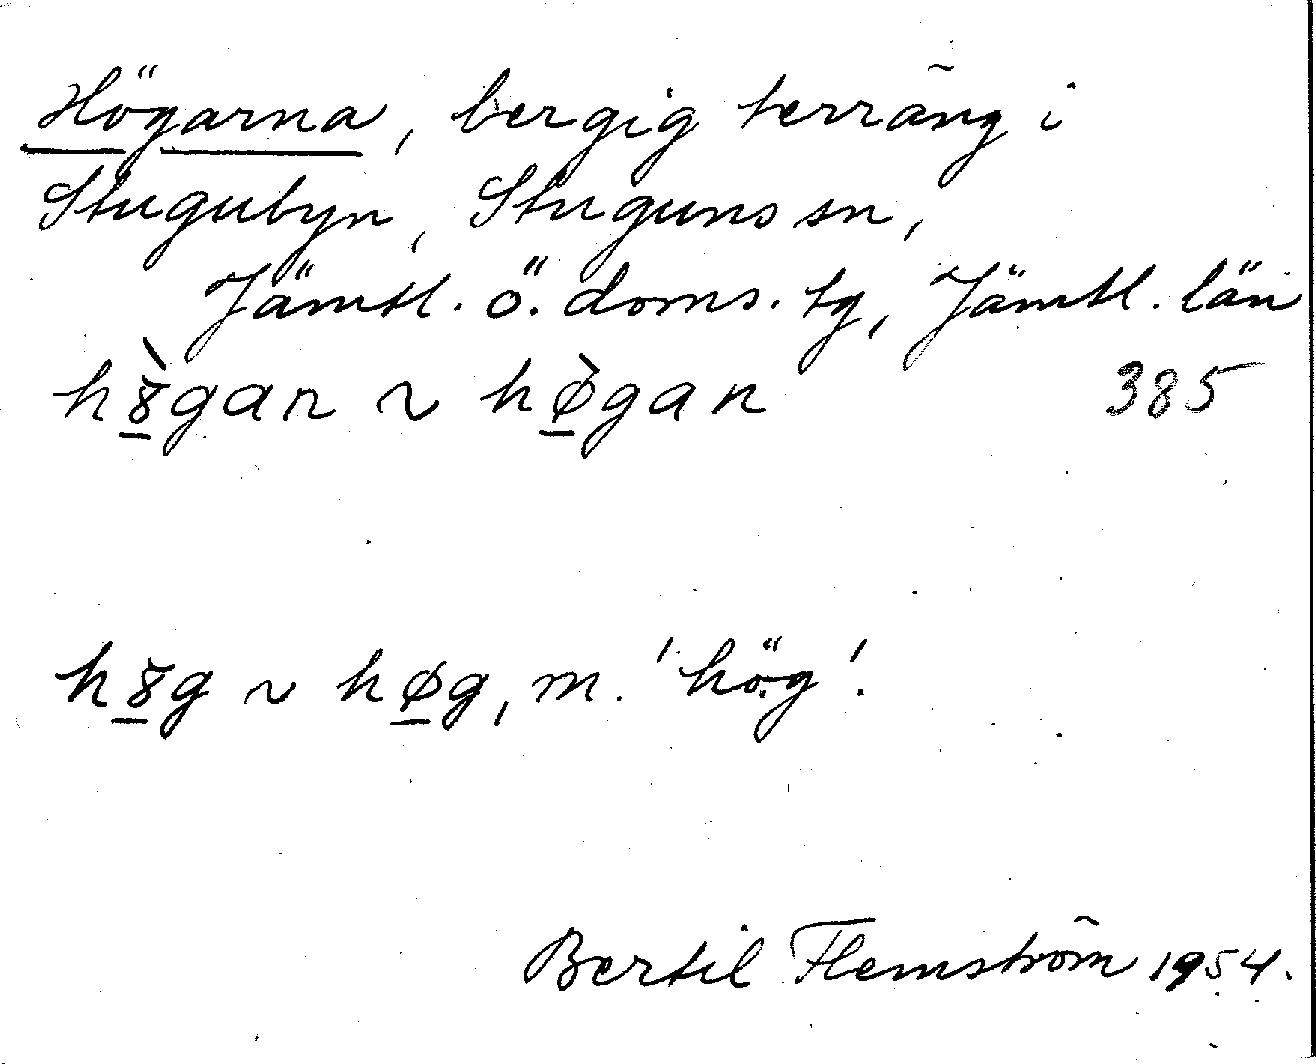 Högarna, bergig terräng i
Stugubyn, Stuguns sn,
Jämtl. ö. doms. tg, Jämtl. län
hø̀gan ~ hø̀gan 385
~ høg, m. 'hög'.
Bertil Flemström 1954.